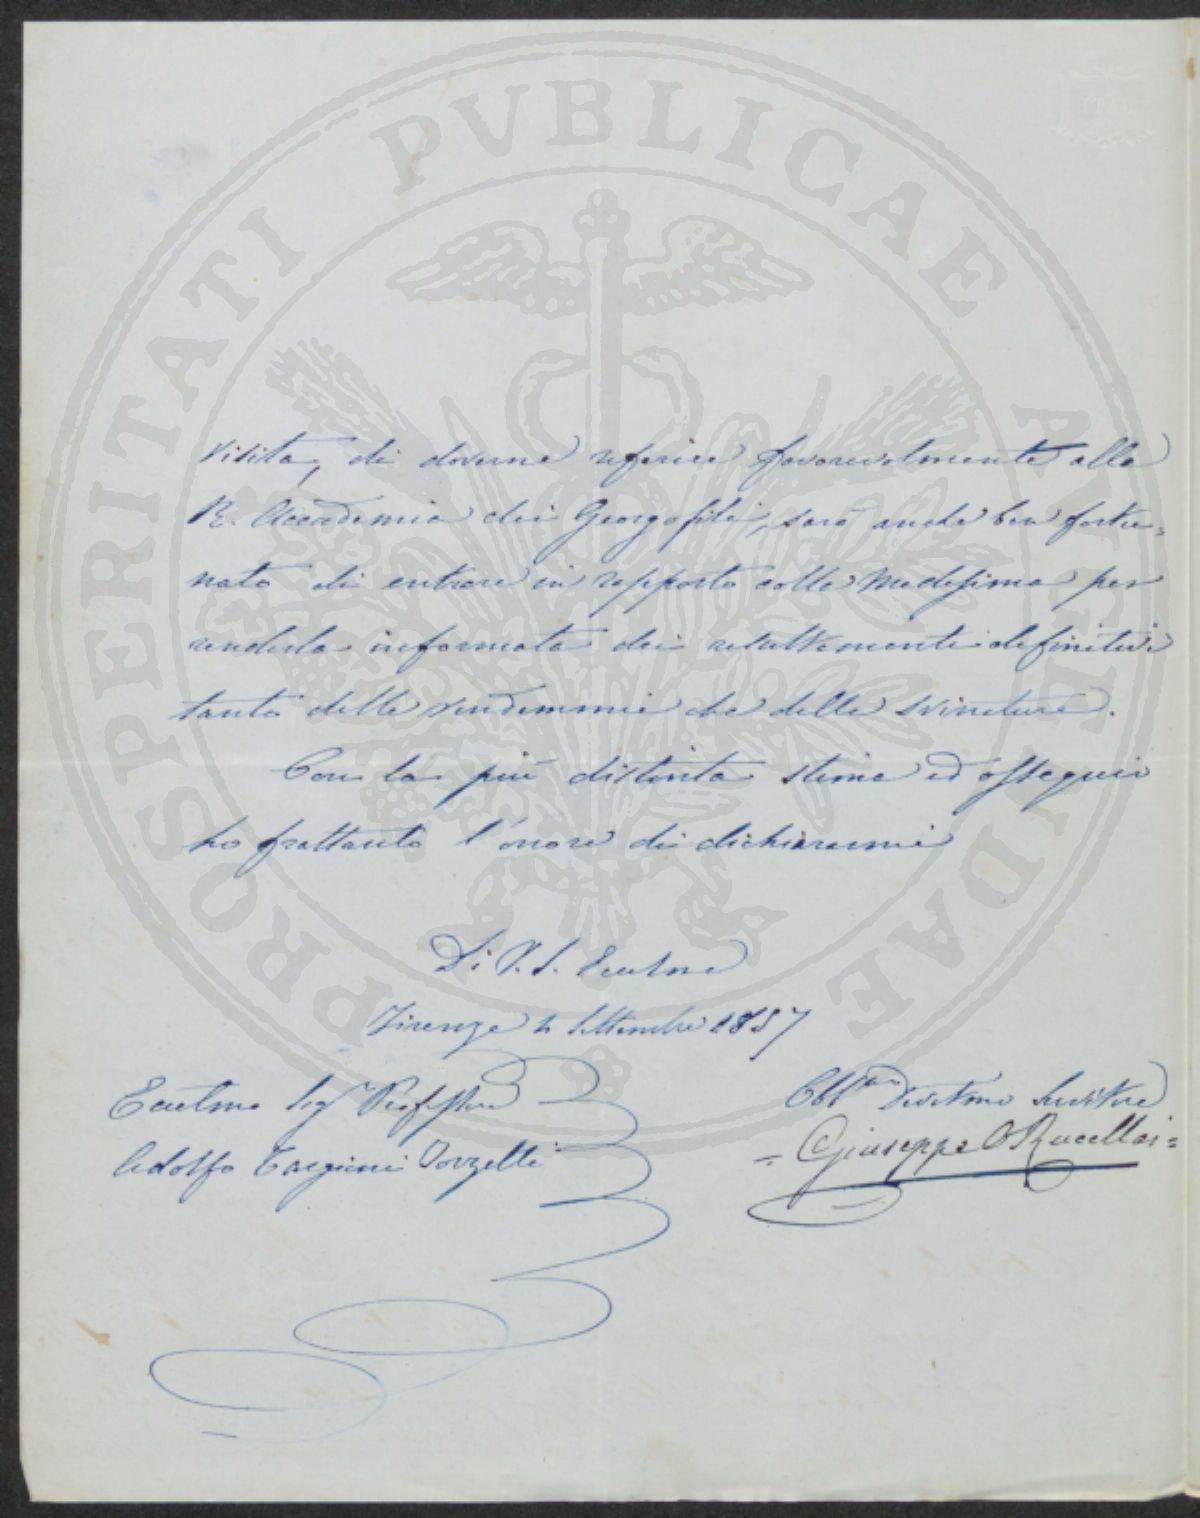 PROSPERITATI PVBLICAE AVGENDAE
visita, di doverne referire favorevolmente alla
R. Accademia dei Georgofili, sarò anche ben fortu=
nato di entrare in rapporto colla Medesima per
renderla informata dei resultamenti definitivi
tanto delle vendemmie che delle svinature.
Con la più distinta stima ed ossequio
ho frattanto l'onore di dichiararmi
Di V. S. Eccelma
Firenze 2 Settembre 1857
Eccelmo Sigr Professore
Adolfo Targioni Tozzetti
Obbmo Devotmo Servitore
= Giuseppe O Rucellai =